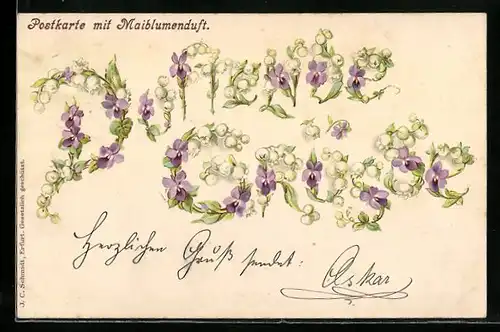 Postkarte mit Maiblumenduft.
Grüsse
Herzlichen Gruß sendet: Oskar
J. C. Schmidt, Erfurt. Gesetzlich geschützt.